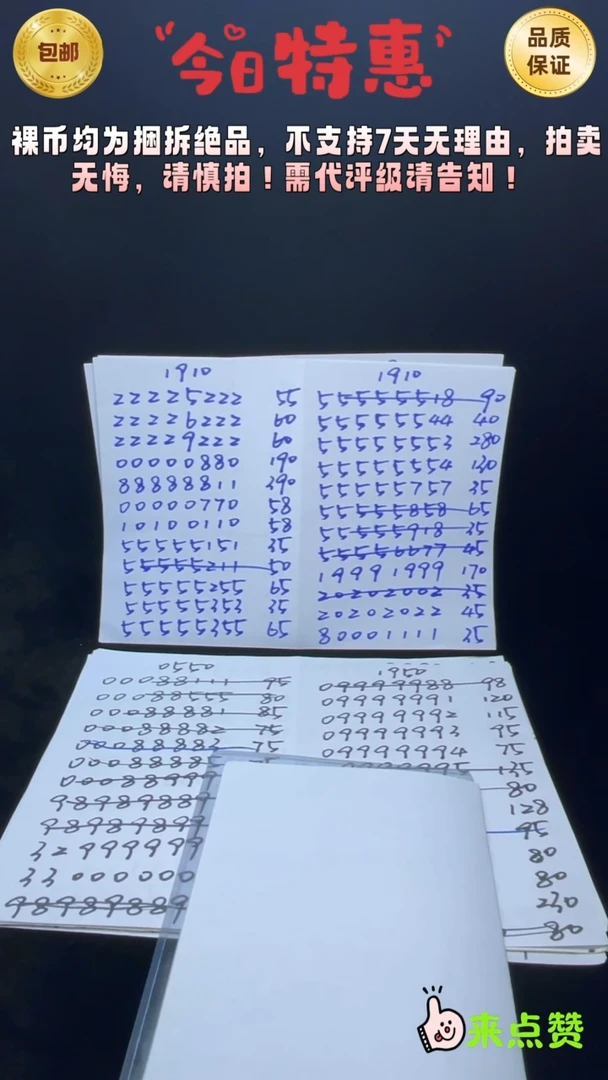 包邮
今日特惠
品质
保证
裸币均为捆拆绝品，不支持7天无理由，拍卖
无悔，请慎拍！需代评级请告知！
1910
22225222 55
22226222 60
22229222 60
00000880 190
88888811 390
00000770 58
10100110 58
55555151 35
55555211 50
55555255 65
55555353 35
55555355 65
1910
55555518 90
55555544 40
55555553 280
55555554 130
55555757 35
55555858 65
55555918 35
55556677 45
19991999 170
20202002 35
20202022 45
80001111 35
0550
00088111 95
00088555 80
00088881 85
00088882 75
00088883 75
0008885 75
00088999
98989889
98989899
32999999
33000000
98989889
1950
09999988 98
09999991 120
09999992 115
09999993 95
09999994 75
95 135
80
128
95
80
80
230
80
来点赞